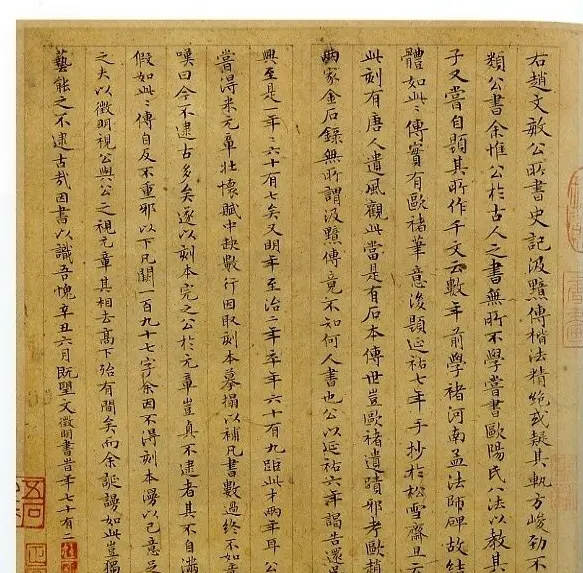 右趙文敏公所書史記汲黯傳楷法精絶或疑其軌方峻勁不
類公書余惟公於古人之書無所不學嘗書歐陽氏八法以教其
子又嘗自題其所作千文云數年前學褚河南孟法師碑故結
體如此〻傳實有歐褚筆意後題延祐七年手抄於松雪齋且云
此刻有唐人遺風觀此當是有石本傳世豈歐褚遺蹟邪考歐趙
兩家金石錄無所謂汲黯傳竟不知何人書也公以延祐六年謁告還
興至是一年〻六十有七矣又明年至治二年卒年六十有九距此才兩年耳公
嘗得米元章壯懷賦中缺數行因取刻本摹搨以補凡書數過終不如
嘆曰今不逮古多矣遂以刻本完之公於元章豈真不逮者其不自滿
假如此〻傳自反不重邪以下凡闕一百九十七字余因不得刻本漫以己意足
之夫以徵明視公與公之視元章其相去高下殆有間矣而余誕謾如此豈獨
藝能之不逮古哉因書以識吾愧辛丑六月既望文徵明書旹年七十有二